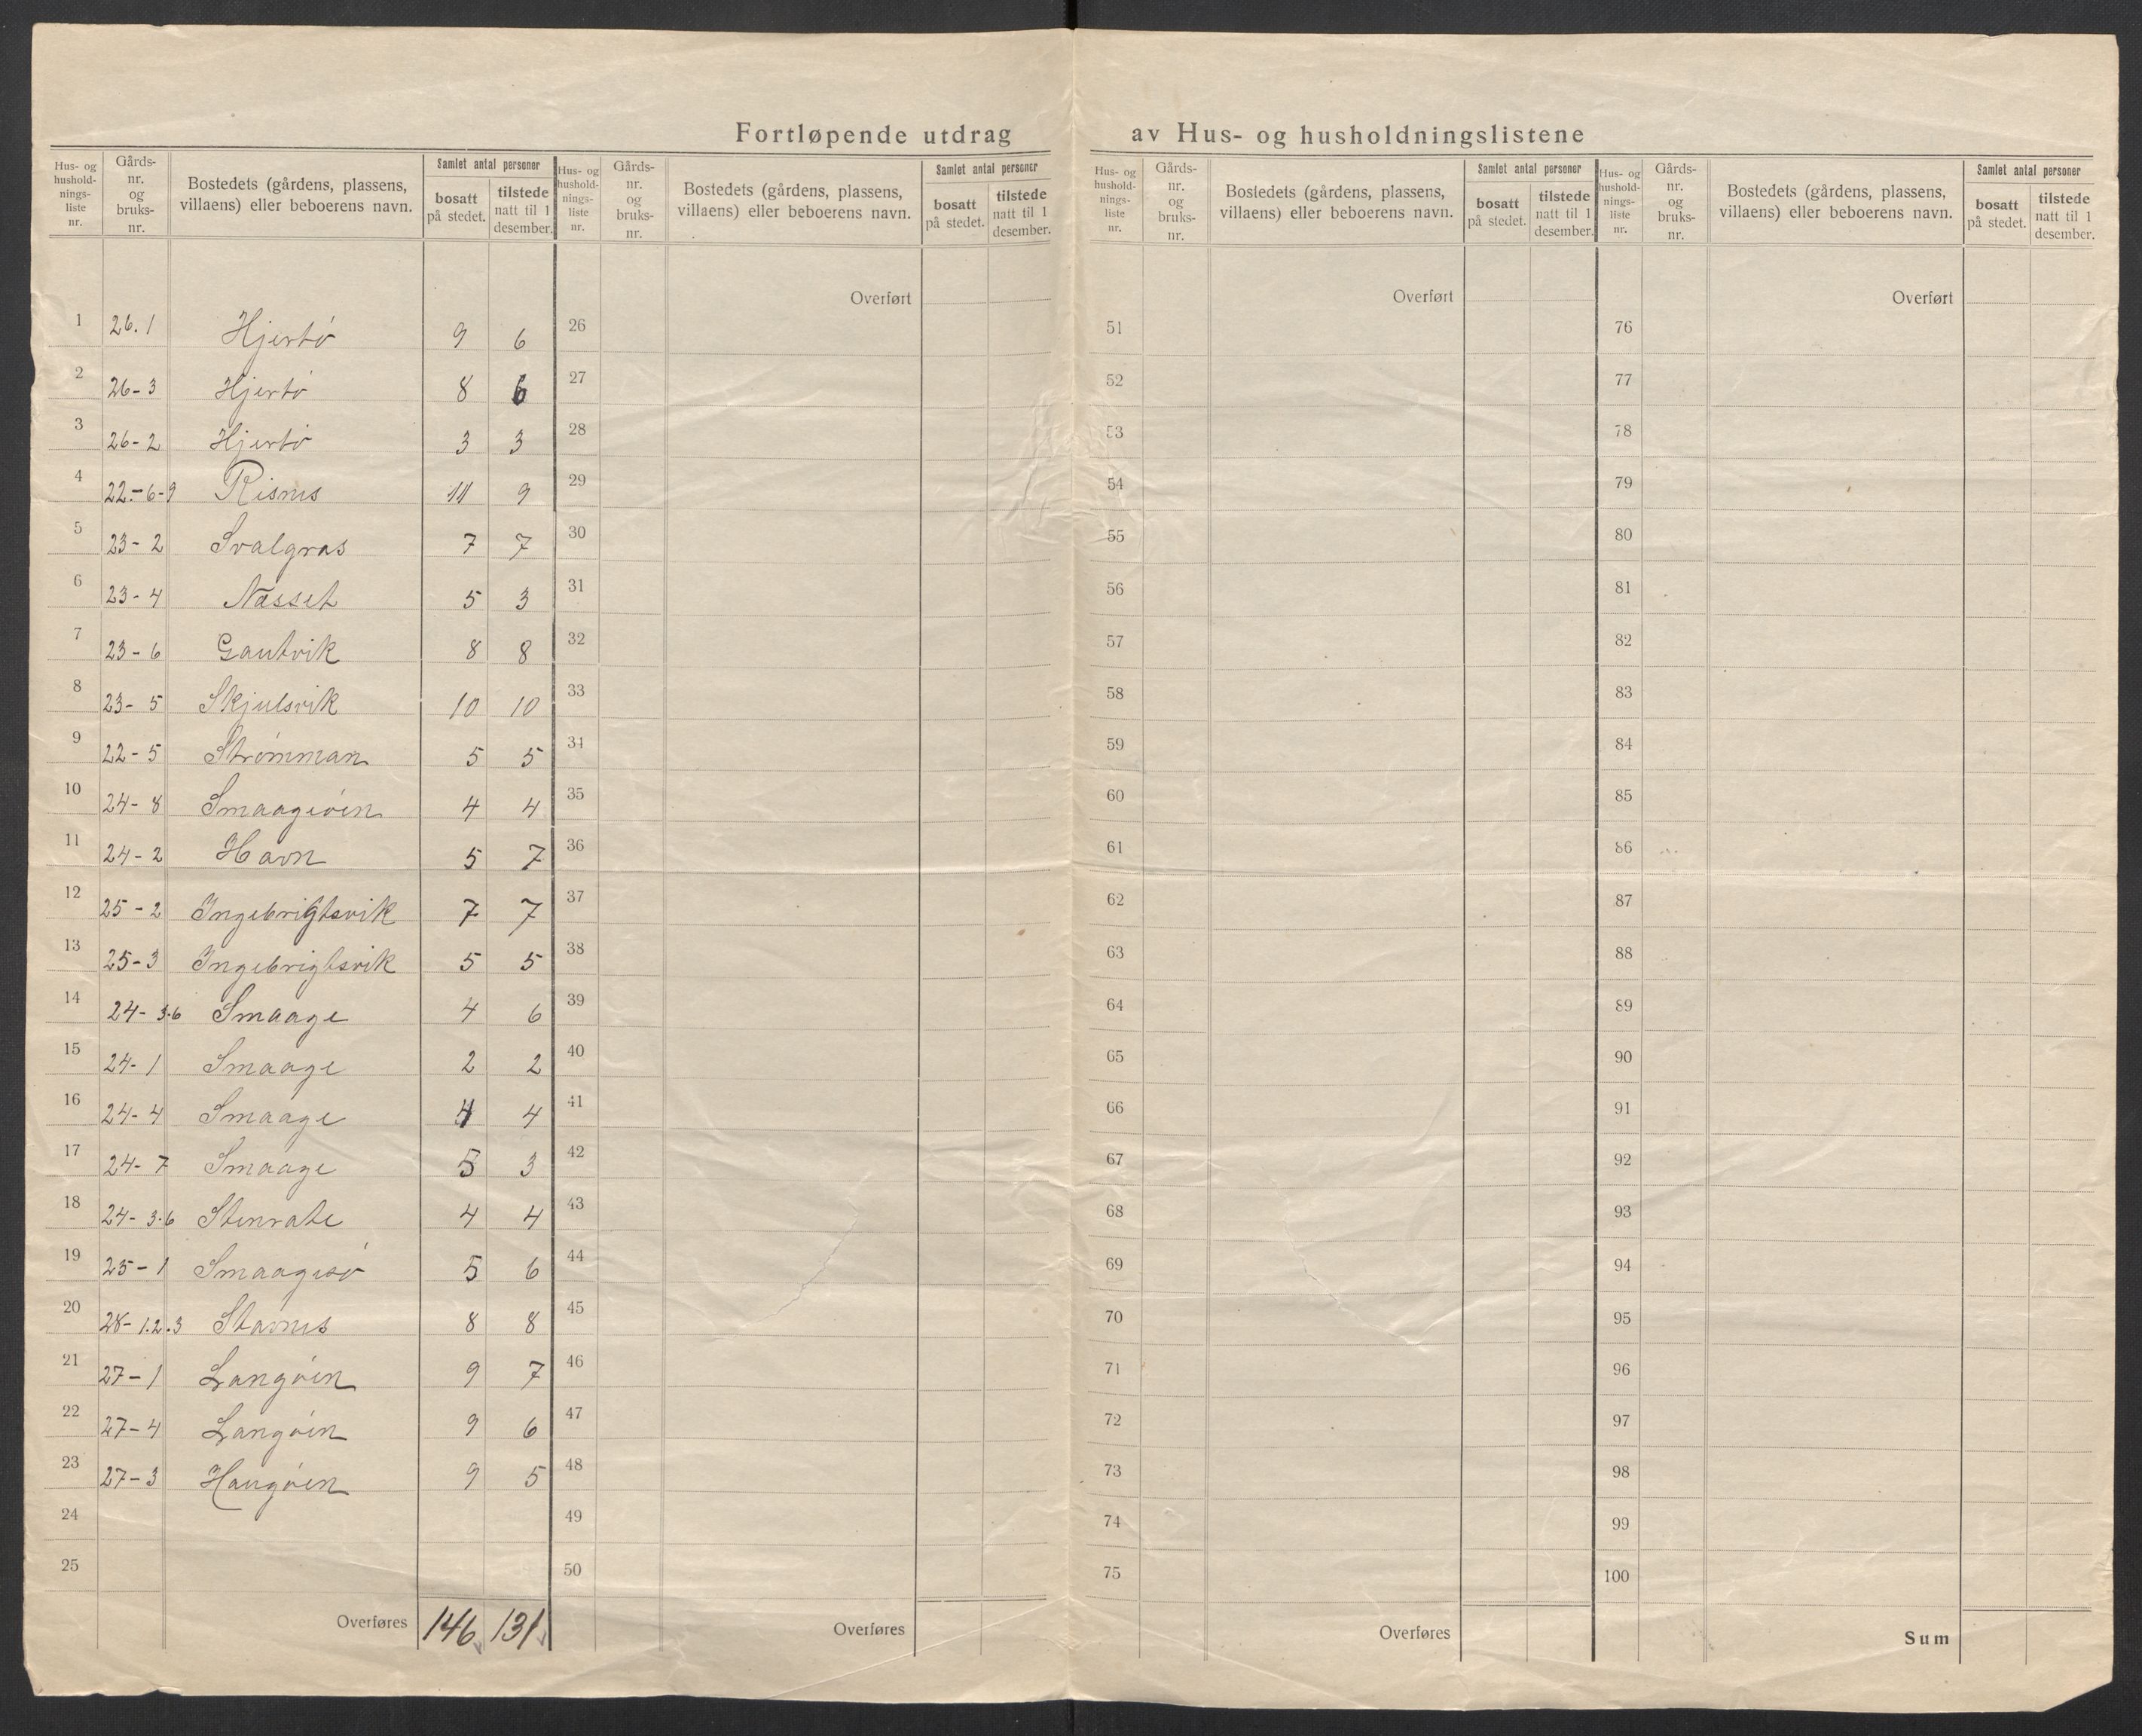 Fortløpende utdrag av Hus- og husholdningslistene
Hus- og hushold-nings-liste nr. Gårds-nr. og bruks-nr. Bostedets (gårdens, plassens, villaens) eller beboerens navn. Samlet antal personer bosatt på stedet. tilstede natt til 1 desember.
Hus- og hushold-nings-liste nr. Gårds-nr. og bruks-nr. Bostedets (gårdens, plassens, villaens) eller beboerens navn. Samlet antal personer bosatt på stedet. tilstede natt til 1 desember.
Hus- og hushold-nings-liste nr. Gårds-nr. og bruks-nr. Bostedets (gårdens, plassens, villaens) eller beboerens navn. Samlet antal personer bosatt på stedet. tilstede natt til 1 desember.
Hus- og hushold-nings-liste nr. Gårds-nr. og bruks-nr. Bostedets (gårdens, plassens, villaens) eller beboerens navn. Samlet antal personer bosatt på stedet. tilstede natt til 1 desember.
Overført Overført Overført
1 26.1 Hjertö 9 6 26 51 76
2 26-3 Hjertö 8 6 27 52 77
3 26-2 Hjertö 3 3 28 53 78
4 22-6-9 Risnes 11 9 29 54 79
5 23-2 Svalgras 7 7 30 55 80
6 23-4 Næsset 5 3 31 56 81
7 23-6 Gautvik 8 8 32 57 82
8 23-5 Skjulsvik 10 10 33 58 83
9 22-5 Strömman 5 5 34 59 84
10 24-8 Smaageöien 4 4 35 60 85
11 24-2 Havn 5 7 36 61 86
12 25-2 Ingebrigtsvik 7 7 37 62 87
13 25-3 Ingebrigtsvik 5 5 38 63 88
14 24-3.6 Smaage 4 6 39 64 89
15 24-1 Smaage 2 2 40 65 90
16 24-4 Smaage 4 4 41 66 91
17 24-7 Smaage 5 3 42 67 92
18 24-3.6 Stenrabe 4 4 43 68 93
19 25-1 Smaagesö 5 6 44 69 94
20 28-1.2.3 Stavnes 8 8 45 70 95
21 27-1 Langöien 9 7 46 71 96
22 27-4 Langöien 9 6 47 72 97
23 27-3 Haugöien 9 5 48 73 98
24 49 74 99
25 50 75 100
Overføres 146 131 Overføres Overføres Sum